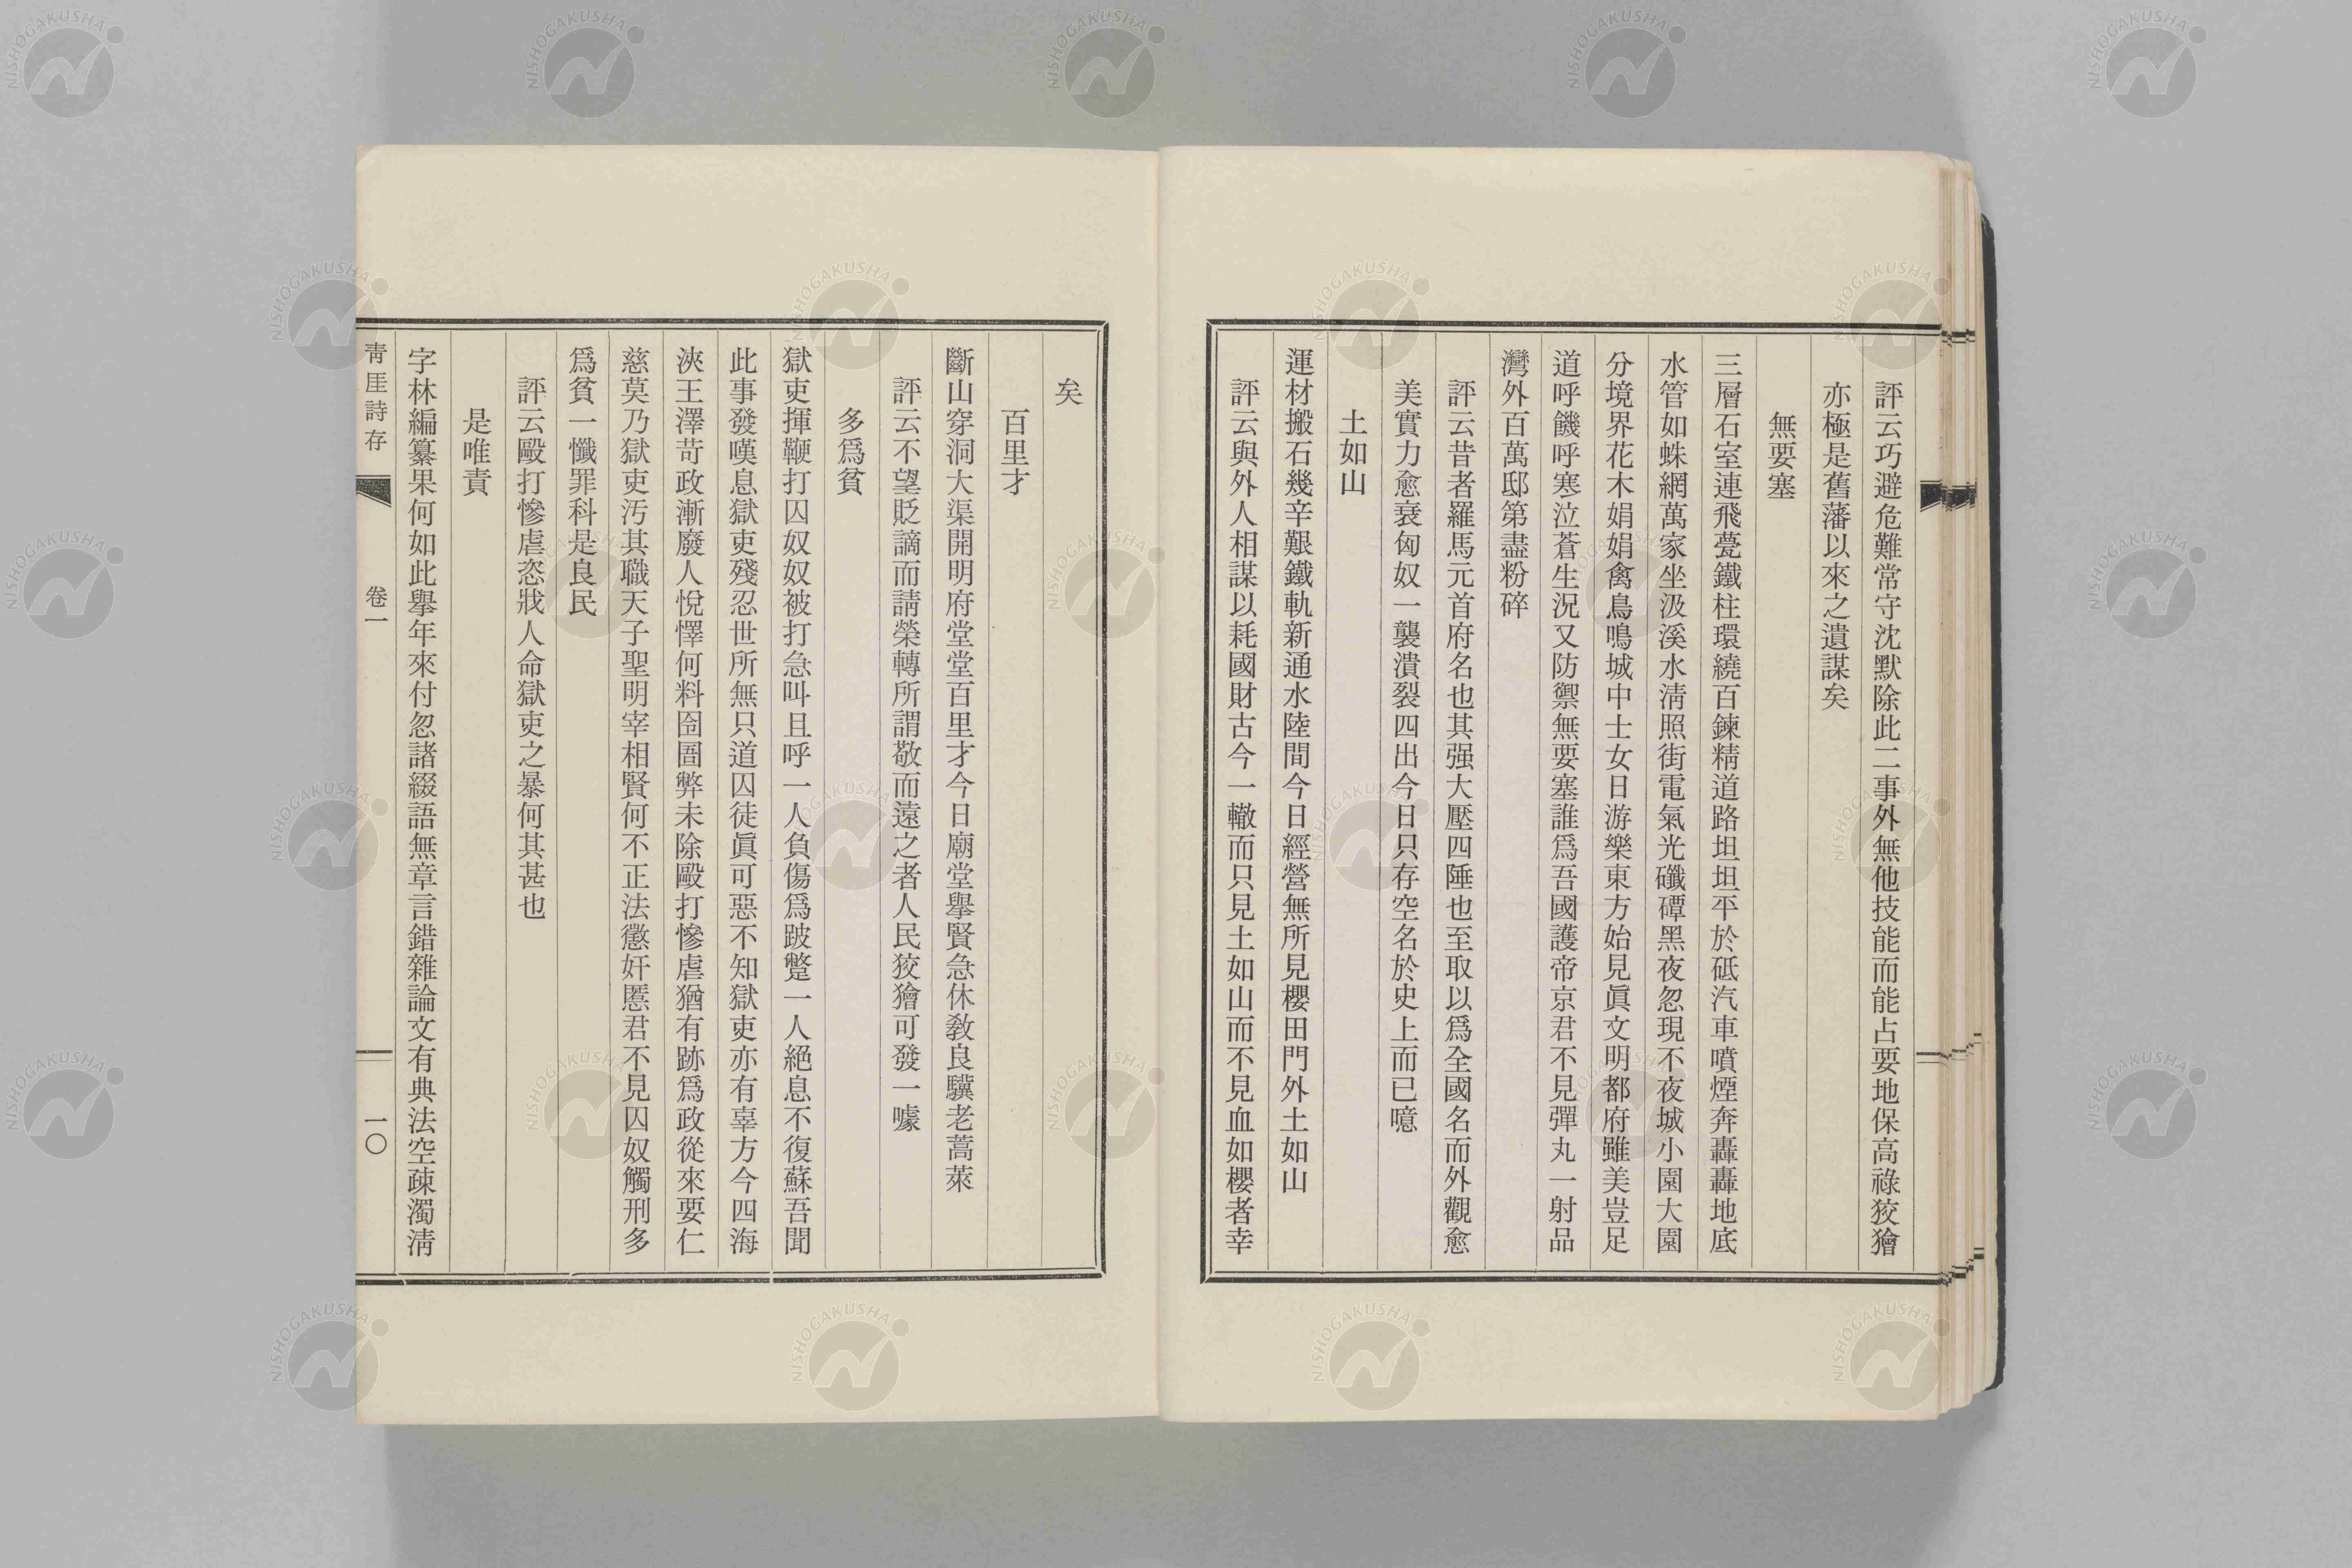 評云巧避危難常守沈默除此二事外無他技能而能占要地保高祿狡獪
亦極是舊藩以來之遺謀矣
無要塞
三層石室連飛甍鐵柱環繞百鍊精道路坦坦平於砥汽車噴煙奔轟轟地底
水管如蛛網萬家坐汲溪水淸照街電氣光礮磹黑夜忽現不夜城小園大園
分境界花木娟娟禽鳥鳴城中士女日游樂東方始見眞文明都府雖美豈足
道呼饑呼寒泣蒼生況又防禦無要塞誰爲吾國護帝京君不見彈丸一射品
灣外百萬邸第盡粉碎
評云昔者羅馬元首府名也其强大壓四陲也至取以爲全國名而外觀愈
美實力愈衰匈奴一襲潰裂四出今日只存空名於史上而已噫
土如山
運材搬石幾辛艱鐵軌新通水陸間今日經營無所見櫻田門外土如山
評云與外人相謀以耗國財古今一轍而只見土如山而不見血如櫻者幸
矣
百里才
斷山穿洞大渠開明府堂堂百里才今日廟堂擧賢急休敎良驥老蒿萊
評云不望貶謫而請榮轉所謂敬而遠之者人民狡獪可發一噱
多爲貧
獄吏揮鞭打囚奴奴被打急叫且呼一人負傷爲跛躄一人絕息不復蘇吾聞
此事發嘆息獄吏殘忍世所無只道囚徒眞可惡不知獄吏亦有辜方今四海
浹王澤苛政漸廢人悅懌何料囹圄弊未除毆打慘虐猶有跡爲政從來要仁
慈莫乃獄吏汚其職天子聖明宰相賢何不正法懲奸慝君不見囚奴觸刑多
爲貧一懺罪科是良民
評云毆打慘虐恣戕人命獄吏之暴何其甚也
是唯責
字林編纂果何如此擧年來付忽諸綴語無章言錯雜論文有典法空疎濁淸
靑厓詩存
卷一
一〇
NISHOGAKUSHA